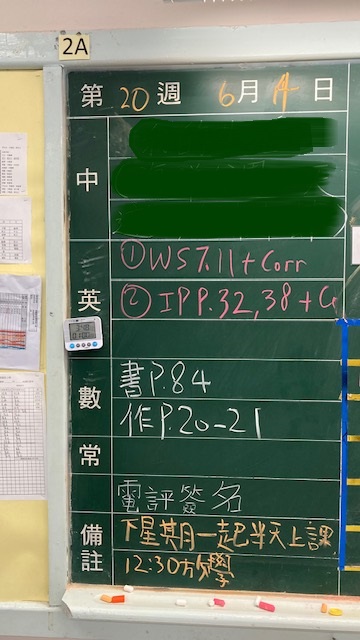 2A
第 20 週 6月 4 日
中
①WS7.11+Corr
英
②IP P.32,38 +
數
書P.84
作P.20-21
常
電評簽名
備註
下星期一起半天上課
12:30放學